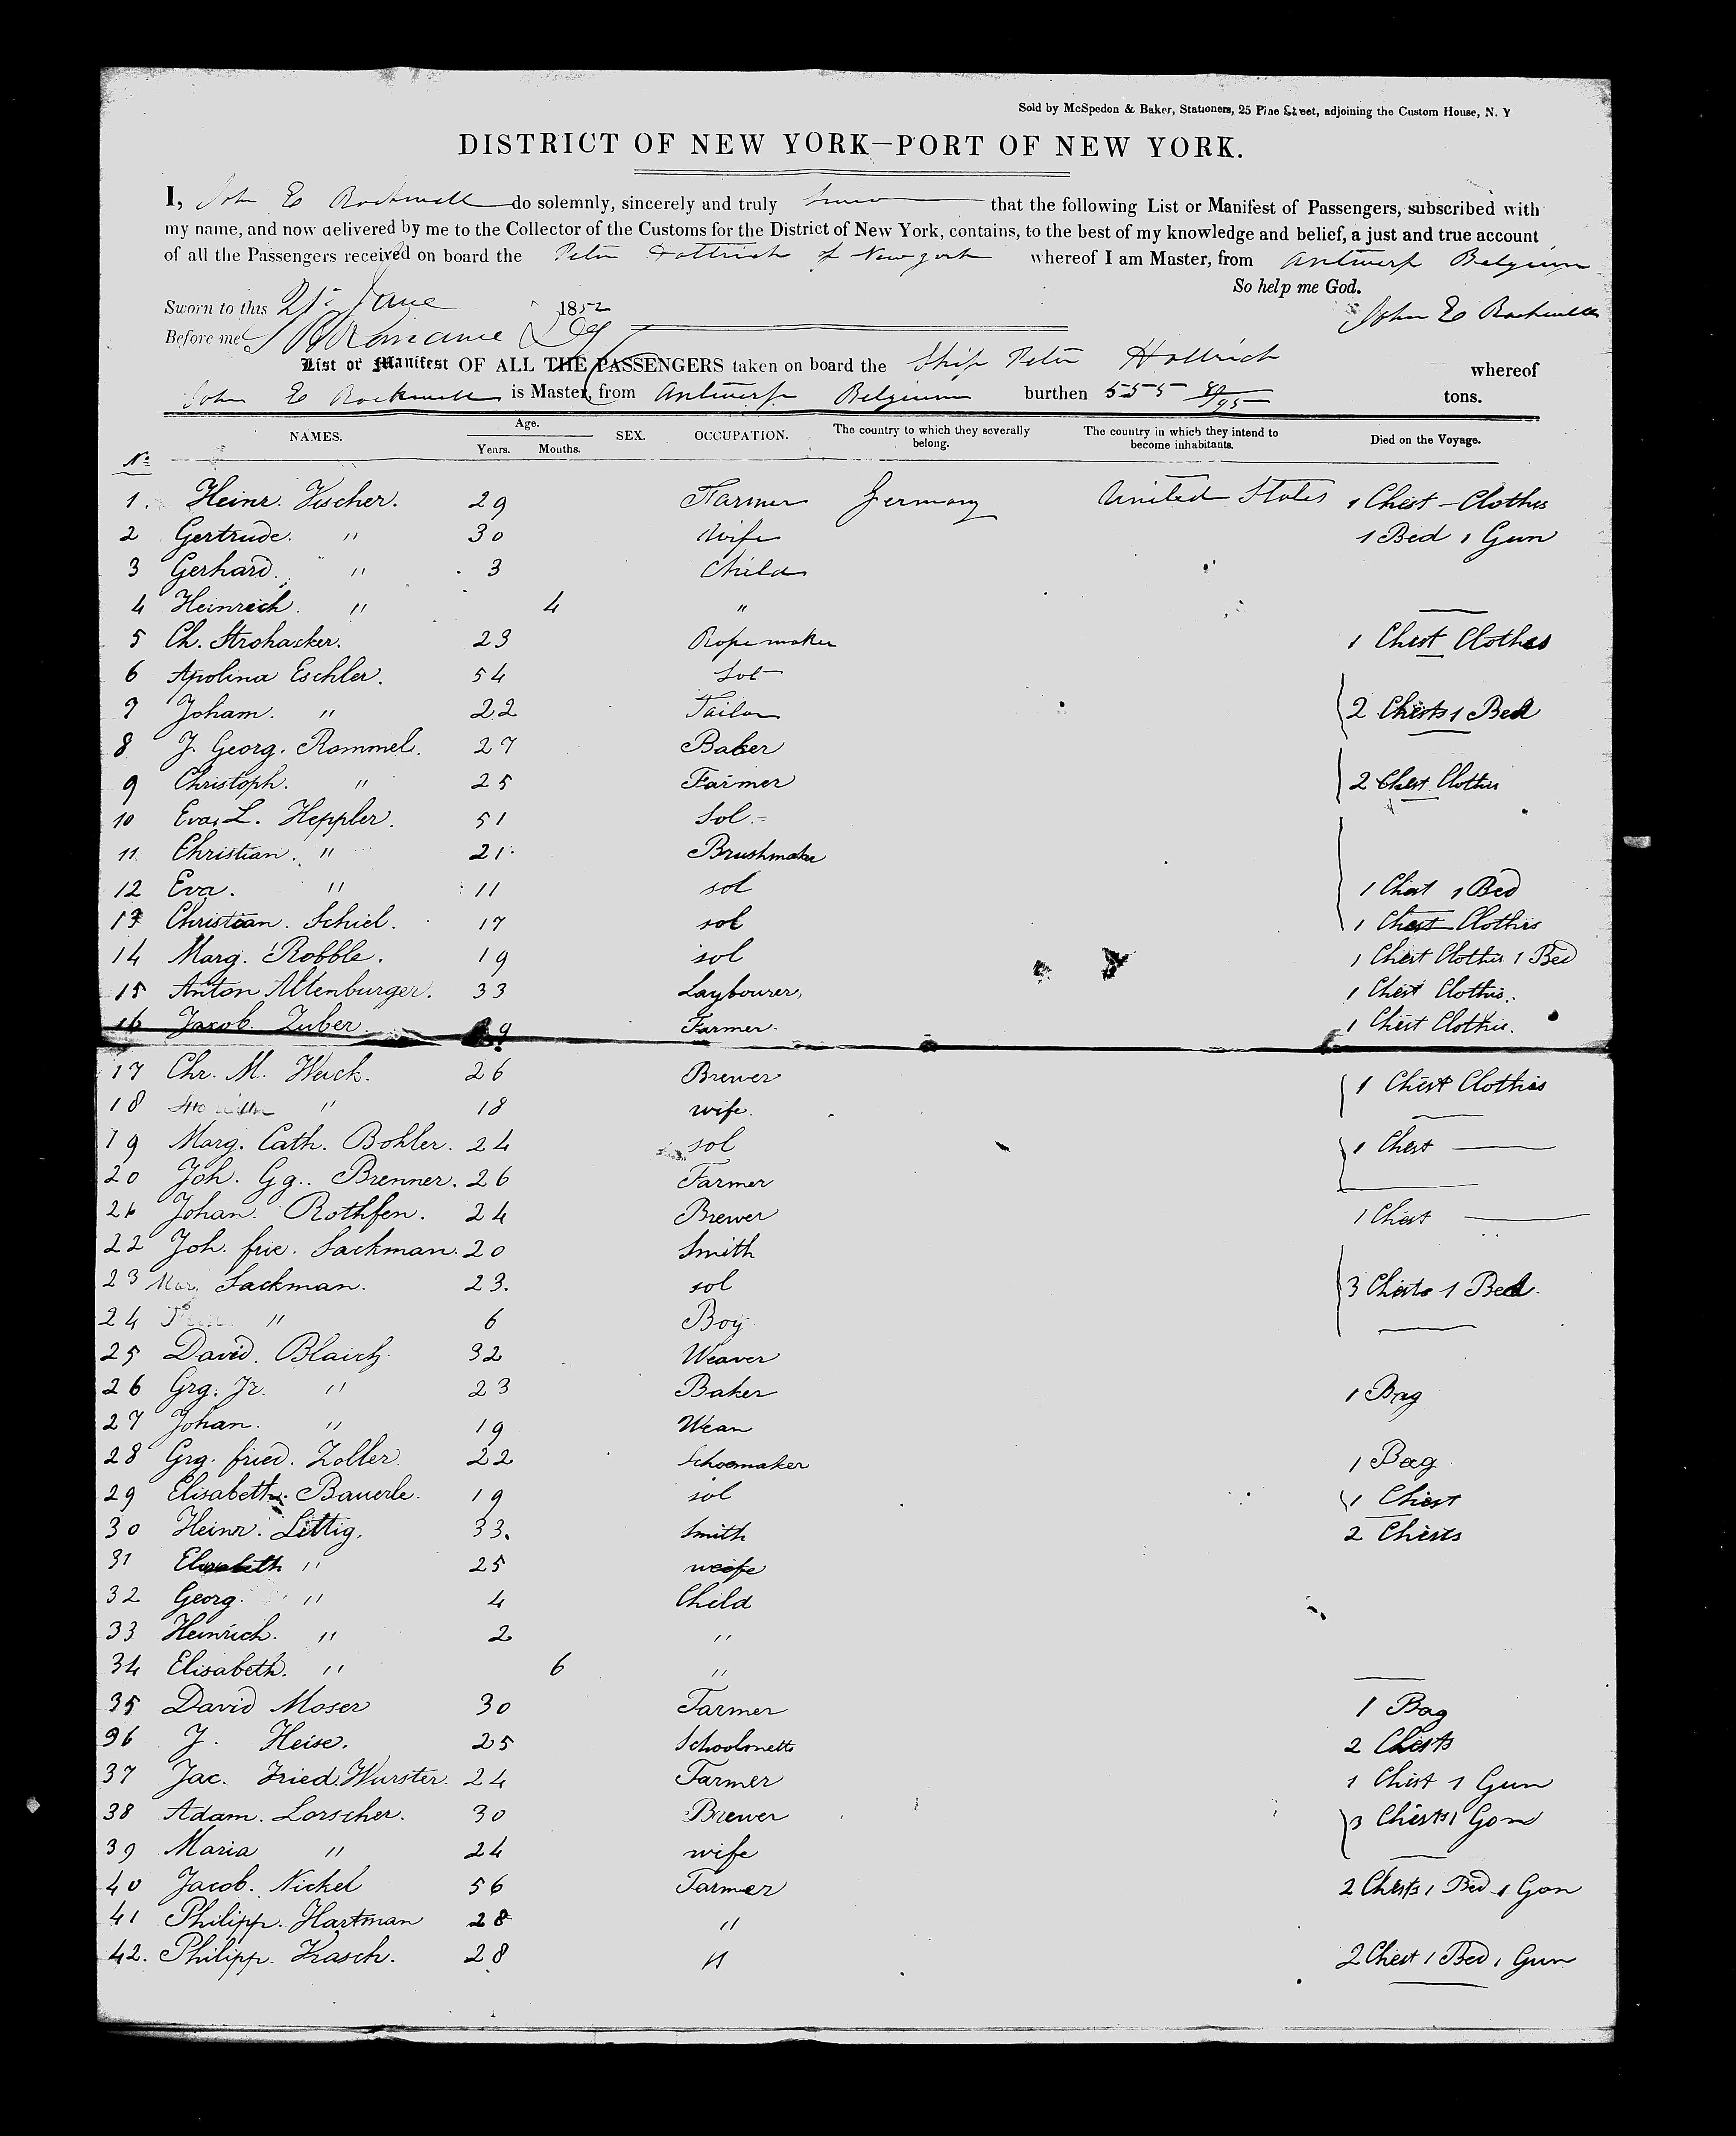 Sold by McSpedon & Baker, Stationers, 25 Pine Street, adjoining the Custom House, N. Y
DISTRICT OF NEW YORK—PORT OF NEW YORK.
I, John E Rockwell do solemnly, sincerely and truly swear that the following List or Manifest of Passengers, subscribed with
my name, and now delivered by me to the Collector of the Customs for the District of New York, contains, to the best of my knowledge and belief, a just and true account
of all the Passengers received on board the Peter Hattrich of New york whereof I am Master, from Antwerp Belgium
So help me God.
Sworn to this 21st June 1852 John E Rockwell
Before me
List or Manifest OF ALL THE PASSENGERS taken on board the Ship Peter Hattrich whereof
John E Rockwell is Master, from Antwerp Belgium burthen 555 80/95 tons.
NAMES. Age. Years. Months. SEX. OCCUPATION. The country to which they severally belong. The country in which they intend to become inhabitants. Died on the Voyage.
No
1. Heinr. Vischer. 29 Farmer Germany United States 1 Chest - Clothes
2 Gertrude. " 30 Wife 1 Bed 1 Gun
3 Gerhard. " 3 Child
4 Heinrich. " 4 "
5 Ch. Strohacker. 23 Ropemaker 1 Chest Clothes
6 Apolina Eschler. 54 Sol
7 Joham. " 22 Tailor 2 Chests 1 Bed
8 J. Georg. Rommel. 27 Baker
9 Christoph. " 25 Farmer 2 Chest Clothes
10 Eva. L. Heppler. 51 Sol.
11 Christian. " 21 Brushmaker
12 Eva. " 11 sol 1 Chest 1 Bed
13 Christian. Schiel. 17 sol 1 Chest Clothes
14 Marg. Robble. 19 sol 1 Chest Clothes 1 Bed
15 Anton Altenburger. 33 Laybourer, 1 Chest Clothes.
16 Jacob Zuber. Farmer. 1 Chest Clothes.
17 Chr. M. Weick. 26 Brewer 1 Chest Clothes
18 " 18 wife.
19 Marg. Cath. Bohler. 24 sol 1 Chest
20 Joh. Gg.. Brenner. 26 Farmer
21 Johan. Rothfen. 24 Brewer 1 Chest
22 Joh. fric. Sackman. 20 Smith
23 Mar. Sackman. 23. sol 3 Chests 1 Bed.
24 " 6 Boy
25 David. Blaich. 32 Weaver
26 Grg. Jr. " 23 Baker 1 Bag
27 Johan. " 19 Wean
28 Grg. fried. Zoller. 22 Schoemaker 1 Bag
29 Elisabeth. Bauerle. 19 sol 1 Chest
30 Heinr. Littig. 33. Smith 2 Chests
31 Elisabeth " 25 weife
32 Georg. " 4 Child
33 Heinrich. " 2 "
34 Elisabeth. " 6 "
35 David Moser 30 Farmer 1 Bag
36 J. Heise. 25 2 Chests
37 Jac. Fried. Wurster. 24 Farmer 1 Chist 1 Gun
38 Adam. Lorscher. 30 Brewer 3 Chests 1 Gon
39 Maria " 24 wife
40 Jacob. Nickel 56 Farmer 2 Chests 1 Bed 1 Gon
41 Philipp. Hartman 28 "
42. Philipp. Krasch. 28 " 2 Chest 1 Bed 1 Gun